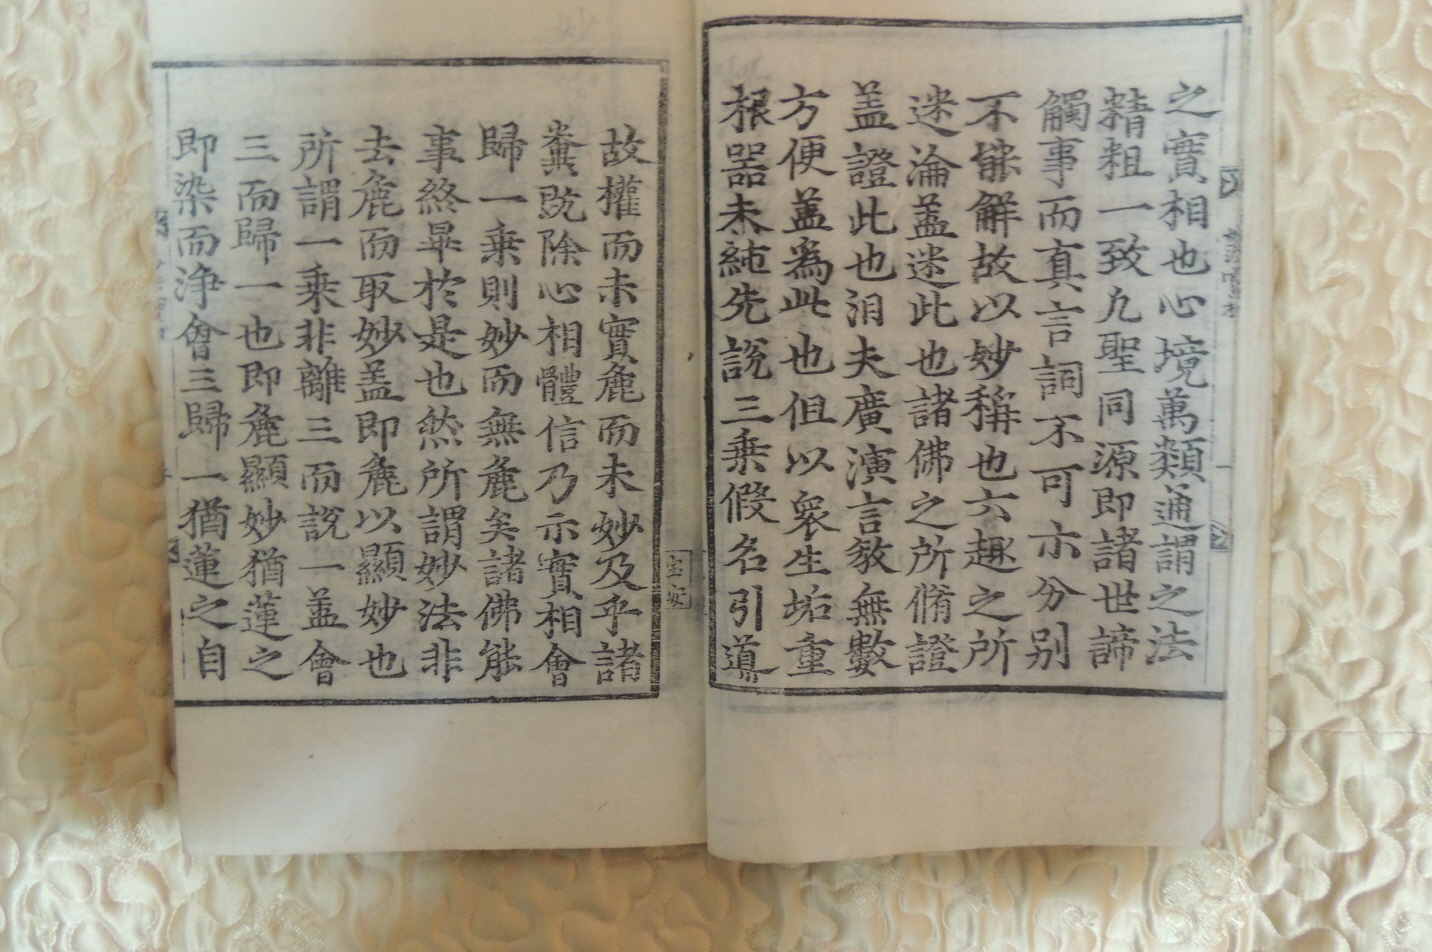 之實相也心境萬類通謂之法
精粗一致凡聖同源即諸世諦
觸事而真言詞不可示分別
不能解故以妙稱也六趣之所
迷淪盖迷此也諸佛之所脩證
盖證此也汨夫廣演言敎無數
方便盖爲此也但以衆生垢重
根器未純先說三乗假名引導
故權而未實麁而未妙及乎諸
糞旣除心相體信乃示實相會
歸一乗則妙而無麁矣諸佛能
事終畢於是也然所謂妙法非
去麁而取妙盖即麁以顯妙也
所謂一乗非離三而說一盖會
三而歸一也即麁顯妙猶蓮之
即染而浄會三歸一猶蓮之自